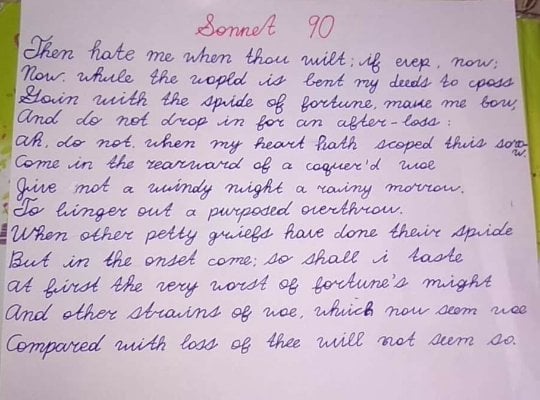 Sonnet 90
Then hate me when thou wilt; if ever, now;
Now. while the world is bent my deeds to cross
Join with the spide of fortune, make me bow,
And do not drop in for an after-loss:
ah, do not, when my heart hath scoped this sorrow.
Come in the rearward of a coquer'd woe
Give not a windy night a rainy morrow,
To linger out a purposed overthrow.
When other petty griefs have done their spide
But in the onset come; so shall i taste
at first the very worst of fortune's might
And other strains of woe, which now seem woe
Compared with loss of thee will not seem so.